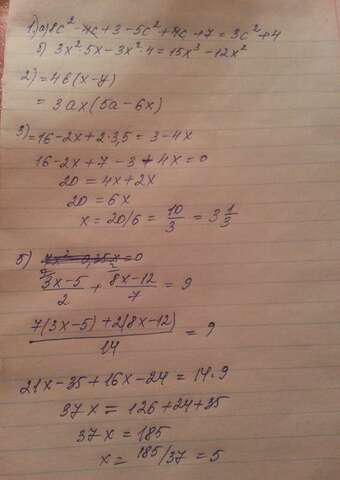 1.) а) 8c² - 4c + 3 - 5c² + 4c + 7 = 3c² + 4
б) 3x²·5x - 3x²·4 = 15x³ - 12x²
2) = 4б(x-y)
= 3ax(5a-6x)
3) = 16-2x+2·3,5 = 3-4x
16-2x+7-3+4x=0
20 = 4x+2x
20 = 6x
x = 20/6 = 10/3 = 3 1/3
5)
(3x-5)/2 + (8x-12)/7 = 9
(7(3x-5)+2(8x-12))/14 = 9
21x-35+16x-24 = 14·9
37x = 126+24+35
37x = 185
x = 185/37 = 5